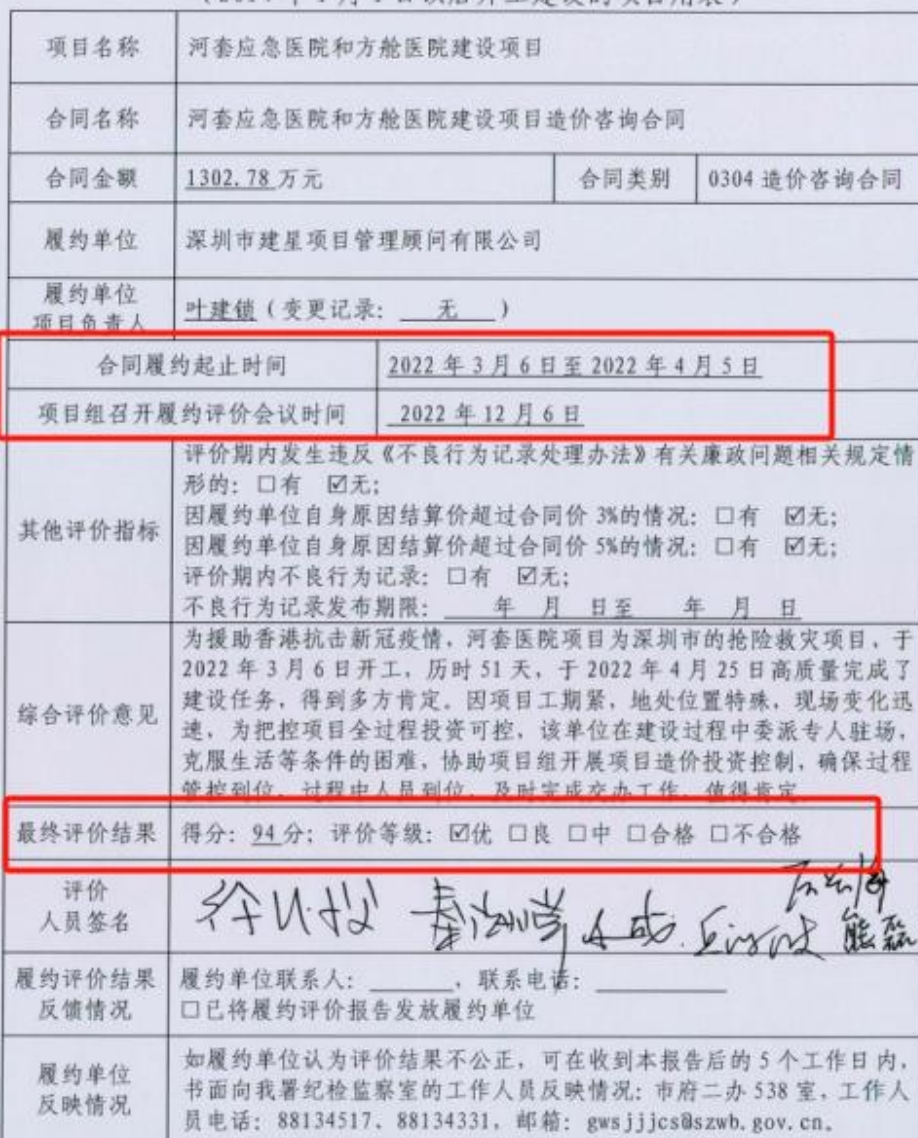 项目名称 河套应急医院和方舱医院建设项目
合同名称 河套应急医院和方舱医院建设项目造价咨询合同
合同金额 1302.78万元 合同类别 0304造价咨询合同
履约单位 深圳市建星项目管理顾问有限公司
履约单位
项目负责人 叶建锁(变更记录: 无 )
合同履约起止时间 2022年3月6日至2022年4月5日
项目组召开履约评价会议时间 2022年12月6日
评价期内发生违反《不良行为记录处理办法》有关廉政问题相关规定情
形的: □有 ☑无;
因履约单位自身原因结算价超过合同价3%的情况: □有 ☑无;
其他评价指标
因履约单位自身原因结算价超过合同价5%的情况: □有 ☑无;
评价期内不良行为记录: □有 ☑无;
不良行为记录发布期限: 年 月 日至 年 月 日
为援助香港抗击新冠疫情,河套医院项目为深圳市的抢险救灾项目,于
2022年3月6日开工,历时51天,于2022年4月25日高质量完成了
建设任务,得到多方肯定。因项目工期紧,地处位置特殊,现场变化迅
综合评价意见 速,为把控项目全过程投资可控,该单位在建设过程中委派专人驻场,
克服生活等条件的困难,协助项目组开展项目造价投资控制,确保过程
管控到位,过程中人员到位,及时完成交办工作,值得肯定。
最终评价结果 得分: 94分; 评价等级: ☑优 □良 □中 □合格 □不合格
评价
人员签名
熊磊
履约评价结果 履约单位联系人: ,联系电话:
反馈情况 □已将履约评价报告发放履约单位
如履约单位认为评价结果不公正,可在收到本报告后的5个工作日内,
履约单位
反映情况 书面向我署纪检监察室的工作人员反映情况: 市府二办538室,工作人
员电话: 88134517、88134331,邮箱: gwsjjjcs@szwb.gov.cn。